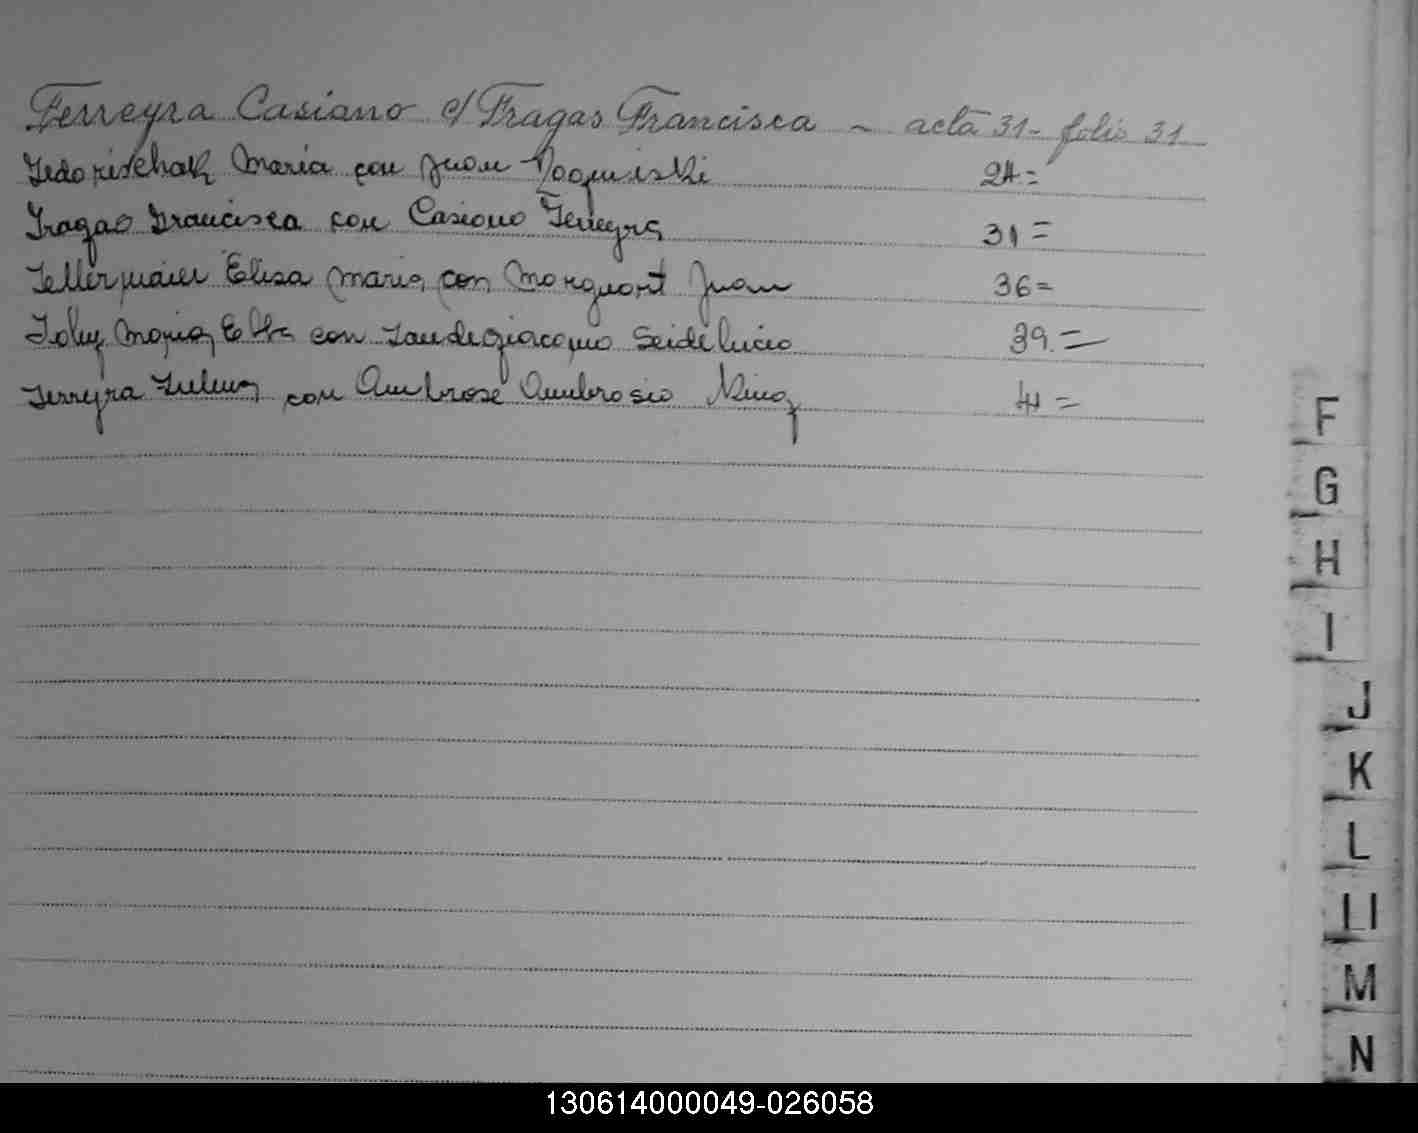 Ferreyra Casiano c/ Fragas Francisca - acta 31 - folio 31
Maria con Juan 24=
Fragas Francisca con Casiano Ferreyra 31=
Fellermaier Elisa Maria con Marquart Juan 36=
Maria Elba con 39.=
Ferreyra Zulma con Ambrose Ambrosio 41=
F
G
H
I
J
K
L
Ll
M
N
130614000049-026058